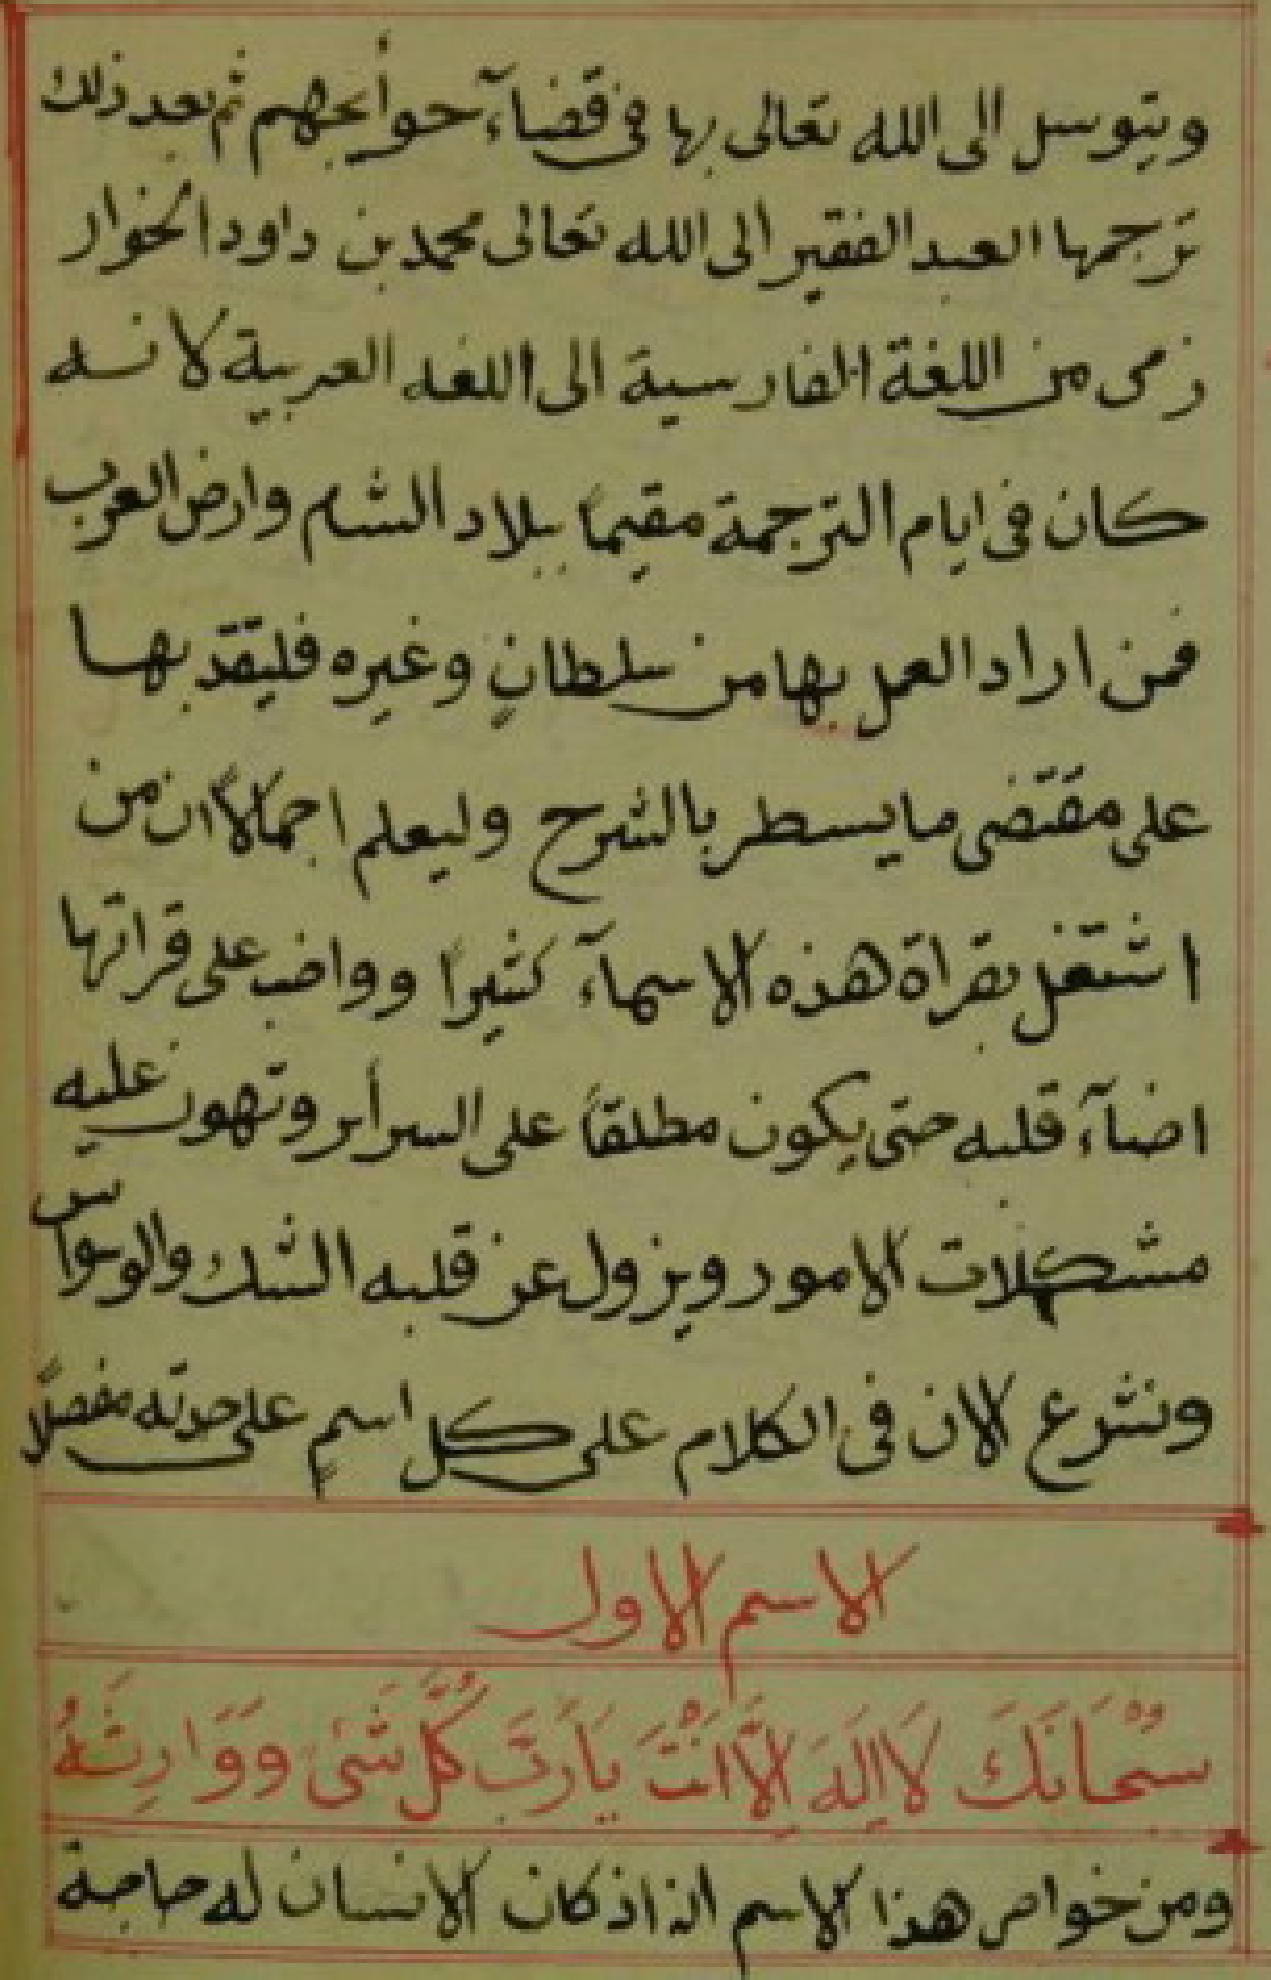 ويتوسل الى الله تعالى بها فى قضآء حوأيجهم ثم بعد ذلك
ترجمها العبد الفقير الى الله تعالى محمد بن داود الخوار
زمى من اللغة الفارسية الى اللغه العربية لانه
كان فى ايام الترجمة مقيماً ببلاد الشام وارض العرب
فمن اراد العمل بها من سلطانٍ وغيره فليقتد بها
على مقتضى ما يسطر بالشرح وليعلم اجمالاً ان من
اشتغل بقراة هذه الاسمآء كثيراً وواضب على قراتها
اضآء قلبه حتى يكون مطلقاً على السرأير وتهون عليه
مشكلات الامور ويزول عن قلبه الشك والوسواس
ونشرع الان فى الكلام على كل اسمٍ على حدته مفصلاً
الاسم الاول
سُبْحَانَكَ لَا اِلَهَ اِلَّا اَنْتَ يَارَبَّ كُلَّ شَىْ وَوَارِثَهُ
ومن خواص هذا الاسم ان اذ كان الانسان له حاجة